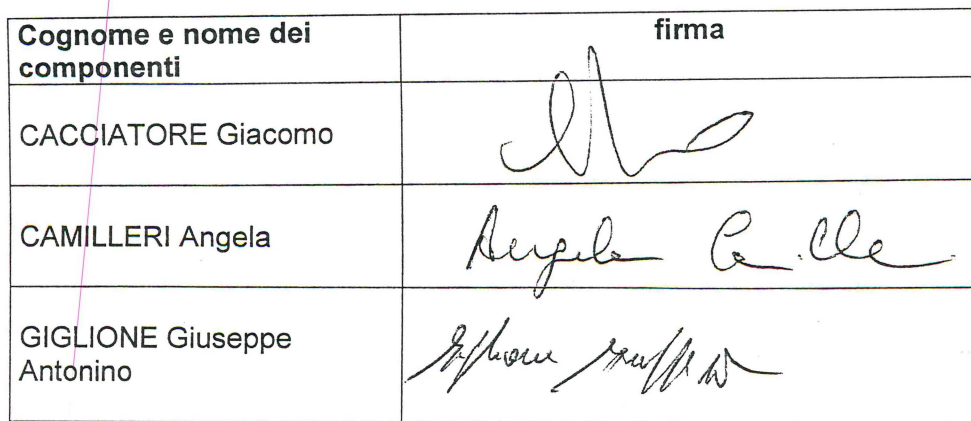 Cognome e nome dei
componenti
firma
CACCIATORE Giacomo
CAMILLERI Angela
Angela
GIGLIONE Giuseppe
Antonino